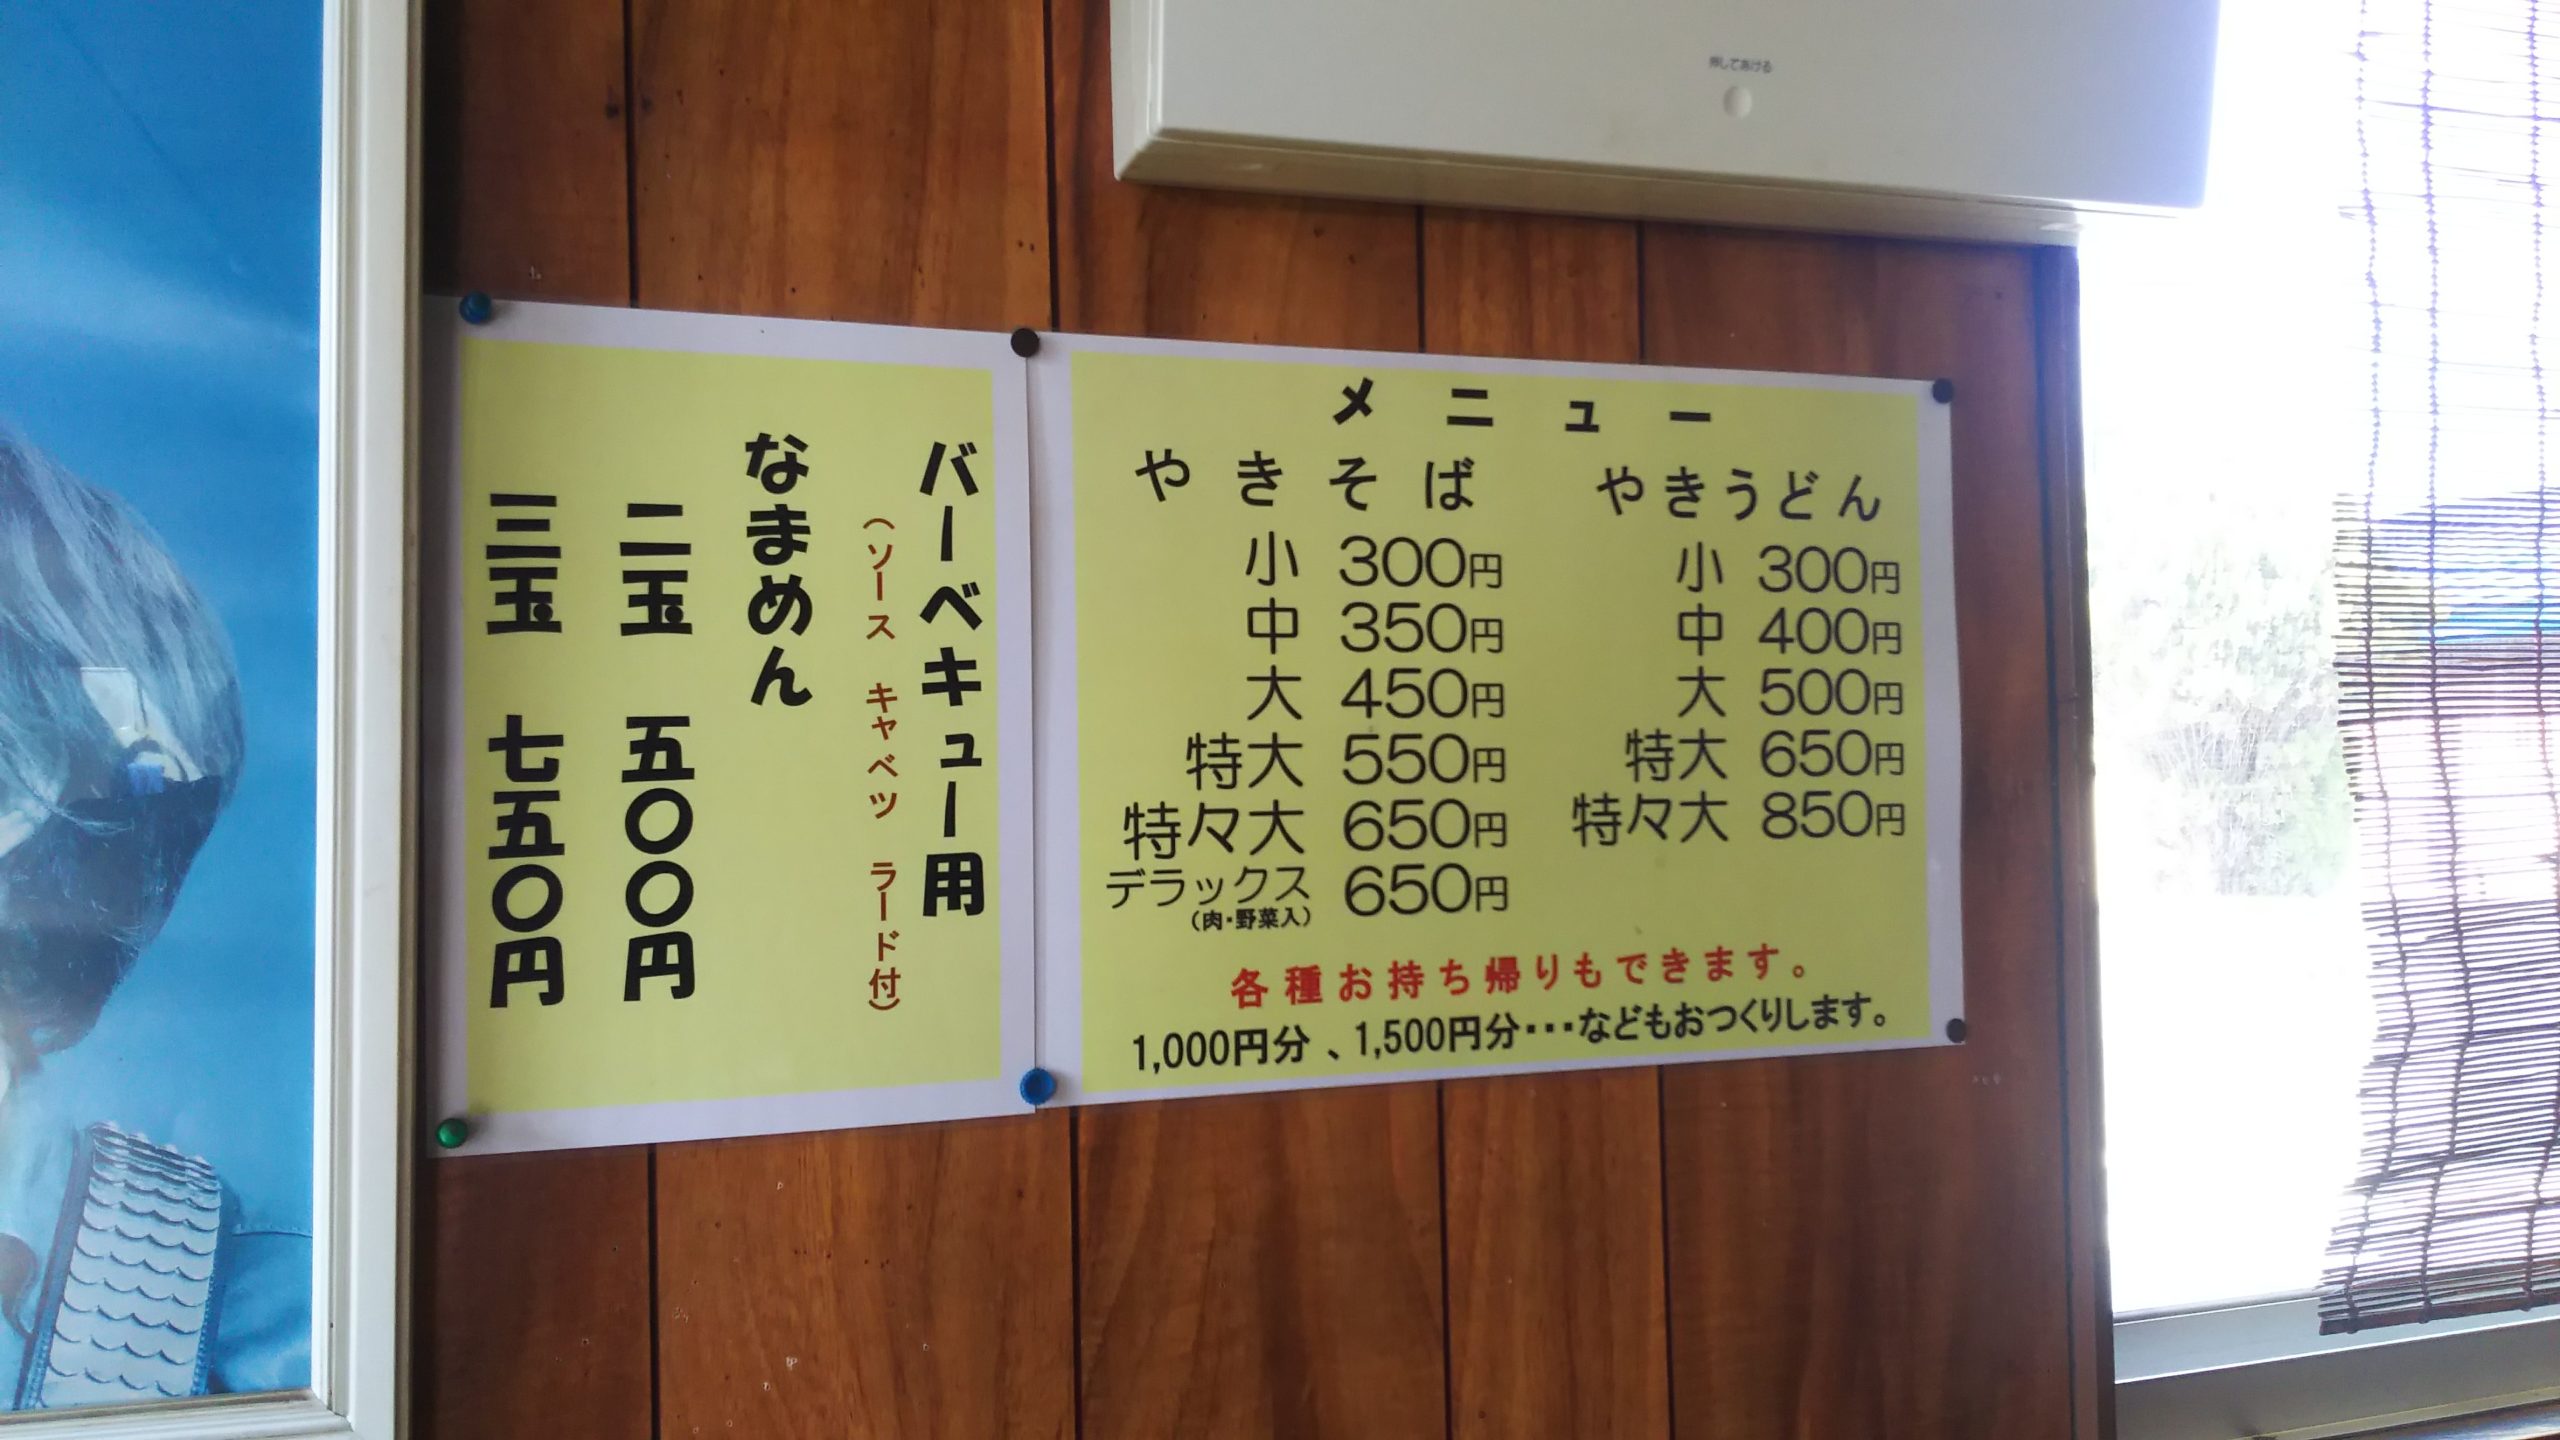 押してあける
メニュー
やきそば
小 300円
中 350円
大 450円
特大 550円
特々大 650円
デラックス 650円
(肉・野菜入)
やきうどん
小 300円
中 400円
大 500円
特大 650円
特々大 850円
各種お持ち帰りもできます。
1,000円分、1,500円分・・・などもおつくりします。
バーベキュー用
(ソース キャベツ ラード付)
なまめん
二玉 五〇〇円
三玉 七五〇円